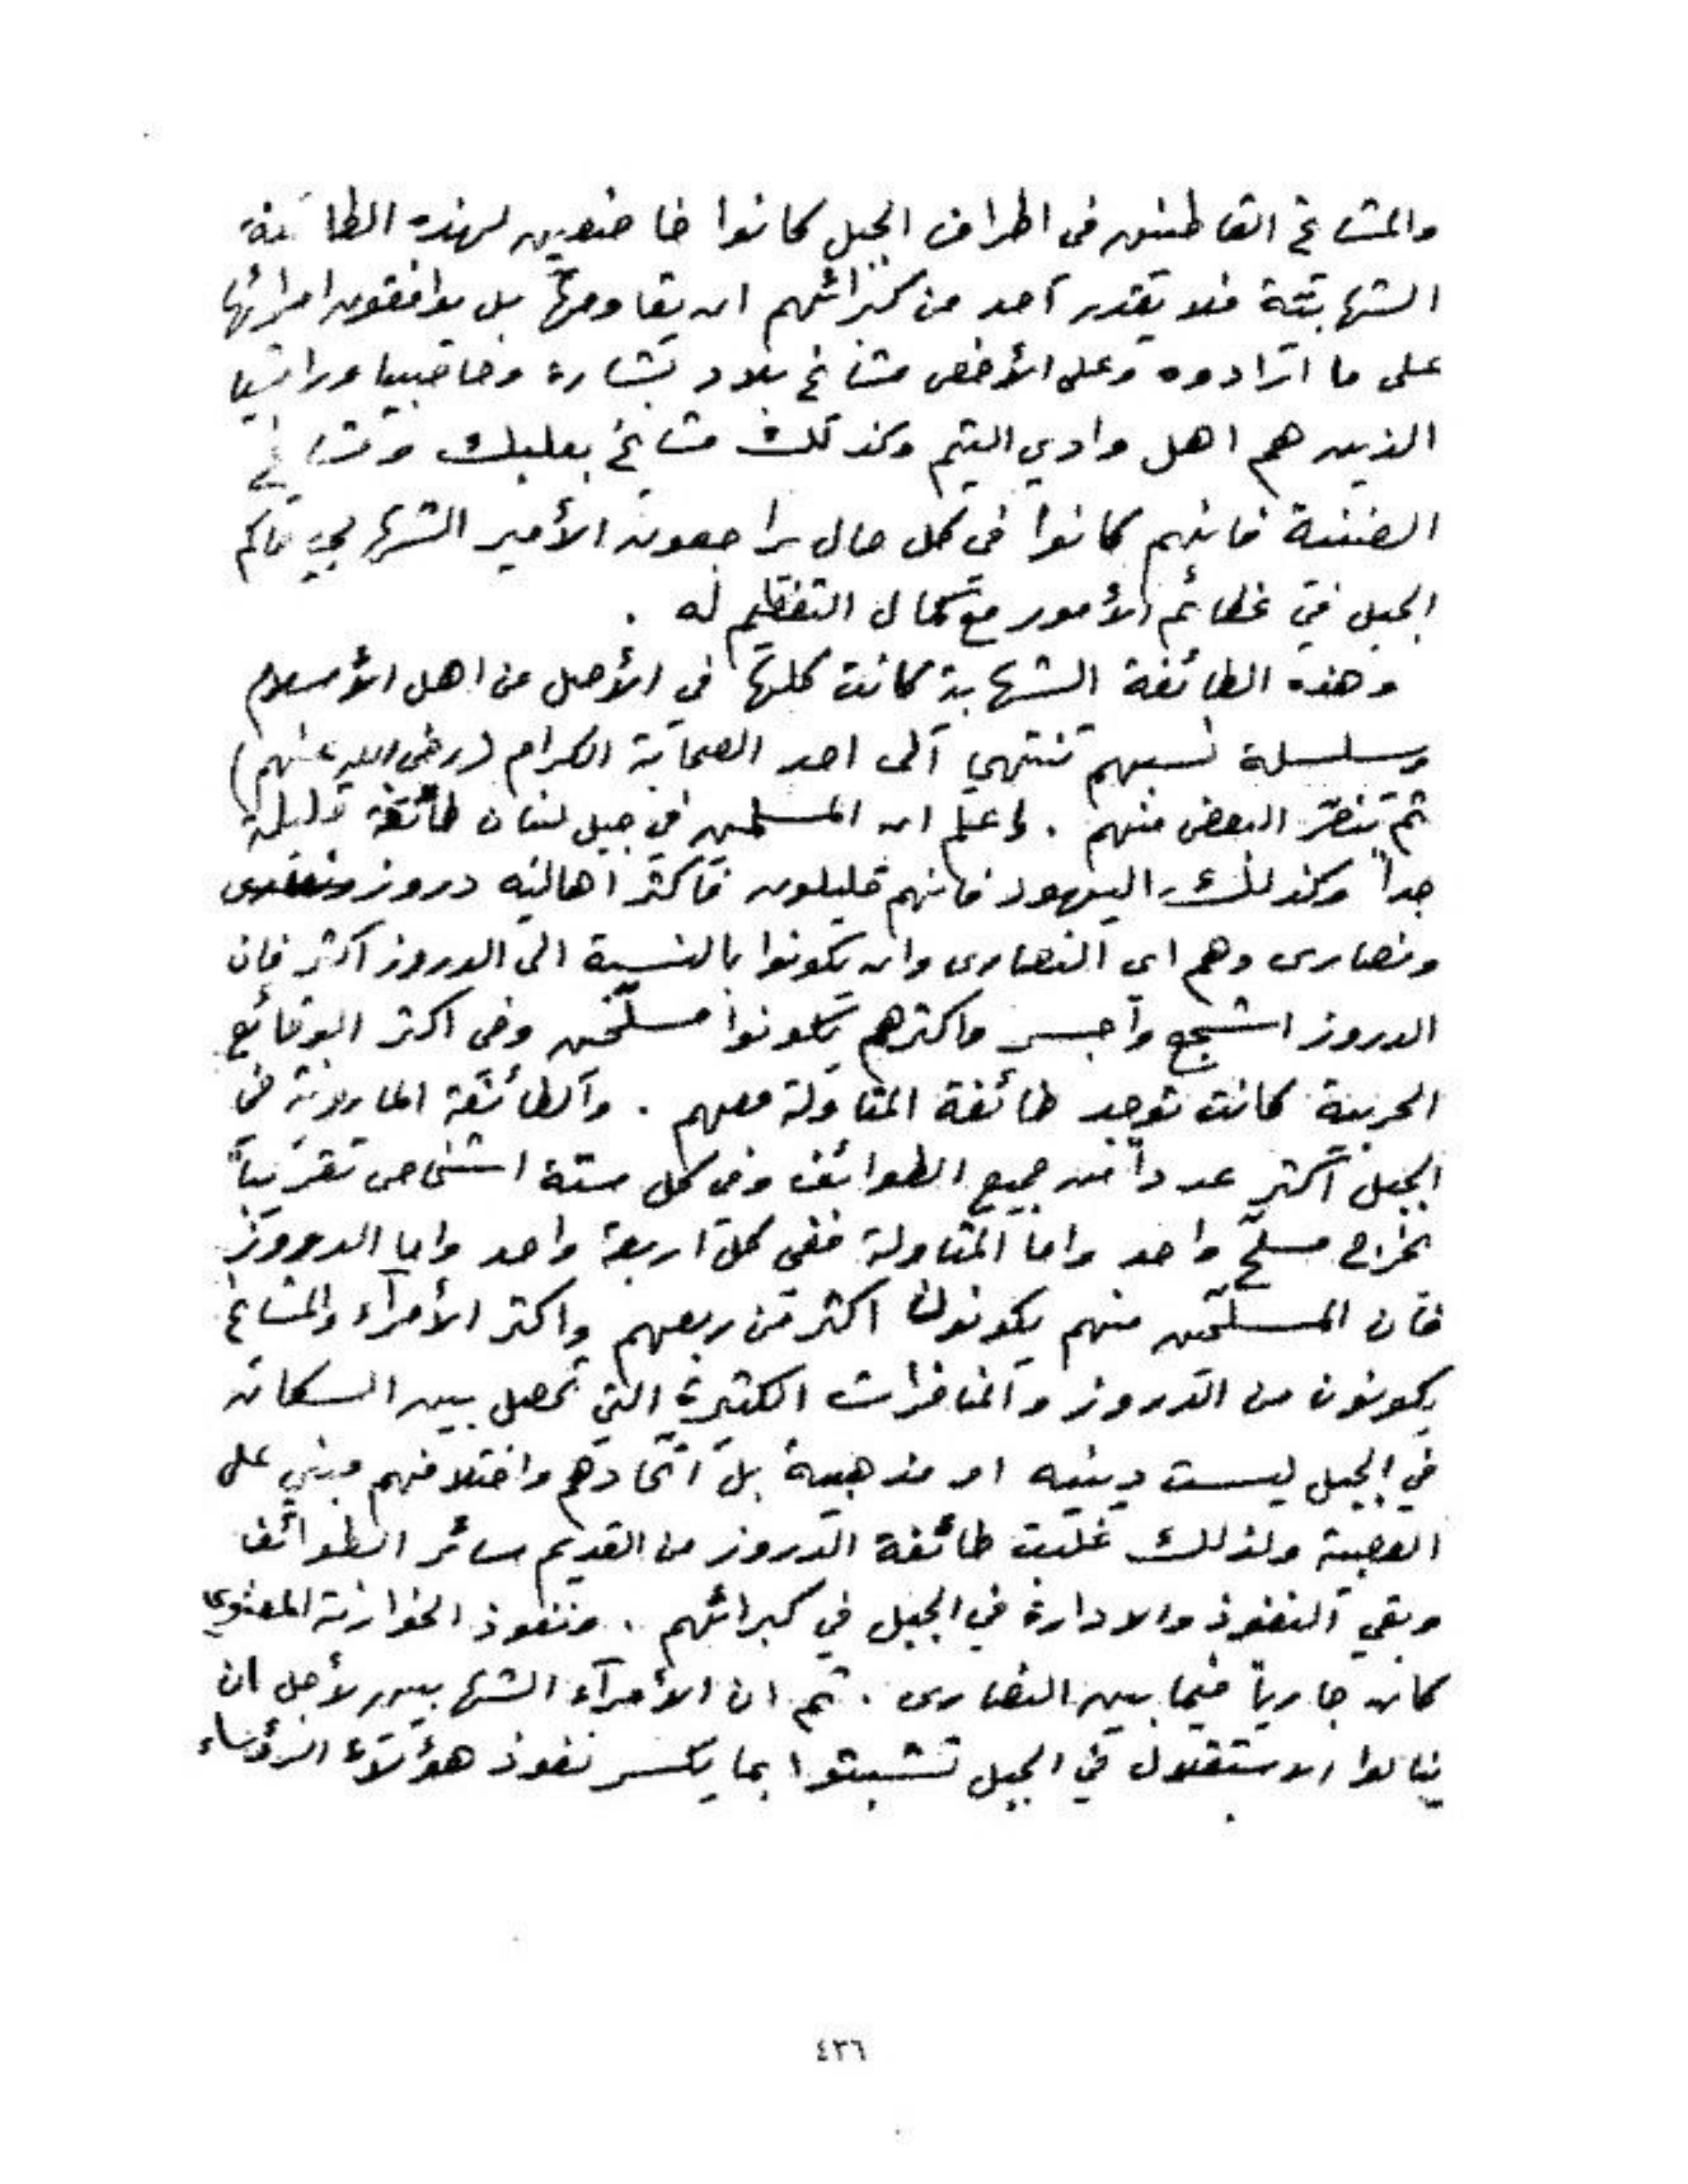 والمشايخ القاطنين في اطراف الجبل كانوا خاضعين لهذه الطائفة
الشهابية فلا يقدر احد من كبرائهم ان يقاومها بل يوافقون امرائها
على ما ارادوه وعلى الأخص مشايخ بلاد بشارة وحاصبيا وراشيا
الذين هم اهل وادي التيم وكذلك مشايخ بعلبك ومشايخ
الضنية فانهم كانوا في كل حال يراجعون الأمير الشهابي حاكم
الجبل في عظائم الأمور مع كمال التعظيم له .
وهذه الطائفة الشهابية كانت كلها في الأصل من اهل الأسلام
وسلسلة نسبهم تنتهي الى احد الصحابة الكرام (رضي الله عنهم)
ثم تنصّر البعض منهم . واعلم ان المسلمين في جبل لبنان طائفة قليلة
جداً وكذلك اليهود فانهم قليلون فأكثر اهاليه دروز
ونصارى وهم اي النصارى وان يكونوا بالنسبة الى الدروز اكثر فان
الدروز اشجع واجسر واكثرهم يكونوا مسلّحين وفي اكثر الوقائع
الحربية كانت توجد طائفة المتاولة معهم . والطائفة المارونية في
الجبل اكثر عدداً من جميع الطوائف وفي كل ستة اشخاص تقريباً
يخرج مسلّح واحد واما المتاولة ففي كل اربعة واحد واما الدروز
فان المسلّحين منهم يكونون اكثر من ربعهم واكثر الأمرآء والمشايخ
يكونون من الدروز والمنافرات الكثيرة التي تحصل بين السكان
في الجبل ليست دينيه او مذهبية بل اتحادهم واختلافهم مبني على
العصبية ولذلك غلبت طائفة الدروز من القديم سائر الطوائف
وبقي النفوذ والادارة في الجبل في كبرائهم . ونفوذ الخوارنة المعنوي
كان جارياً فيما بين النصارى . ثم ان الأمرآء الشهابيين لأجل ان
ينالوا الاستقلال في الجبل تشبثوا بما يكسر نفوذ هؤلاء الرؤساء
٤٣٦